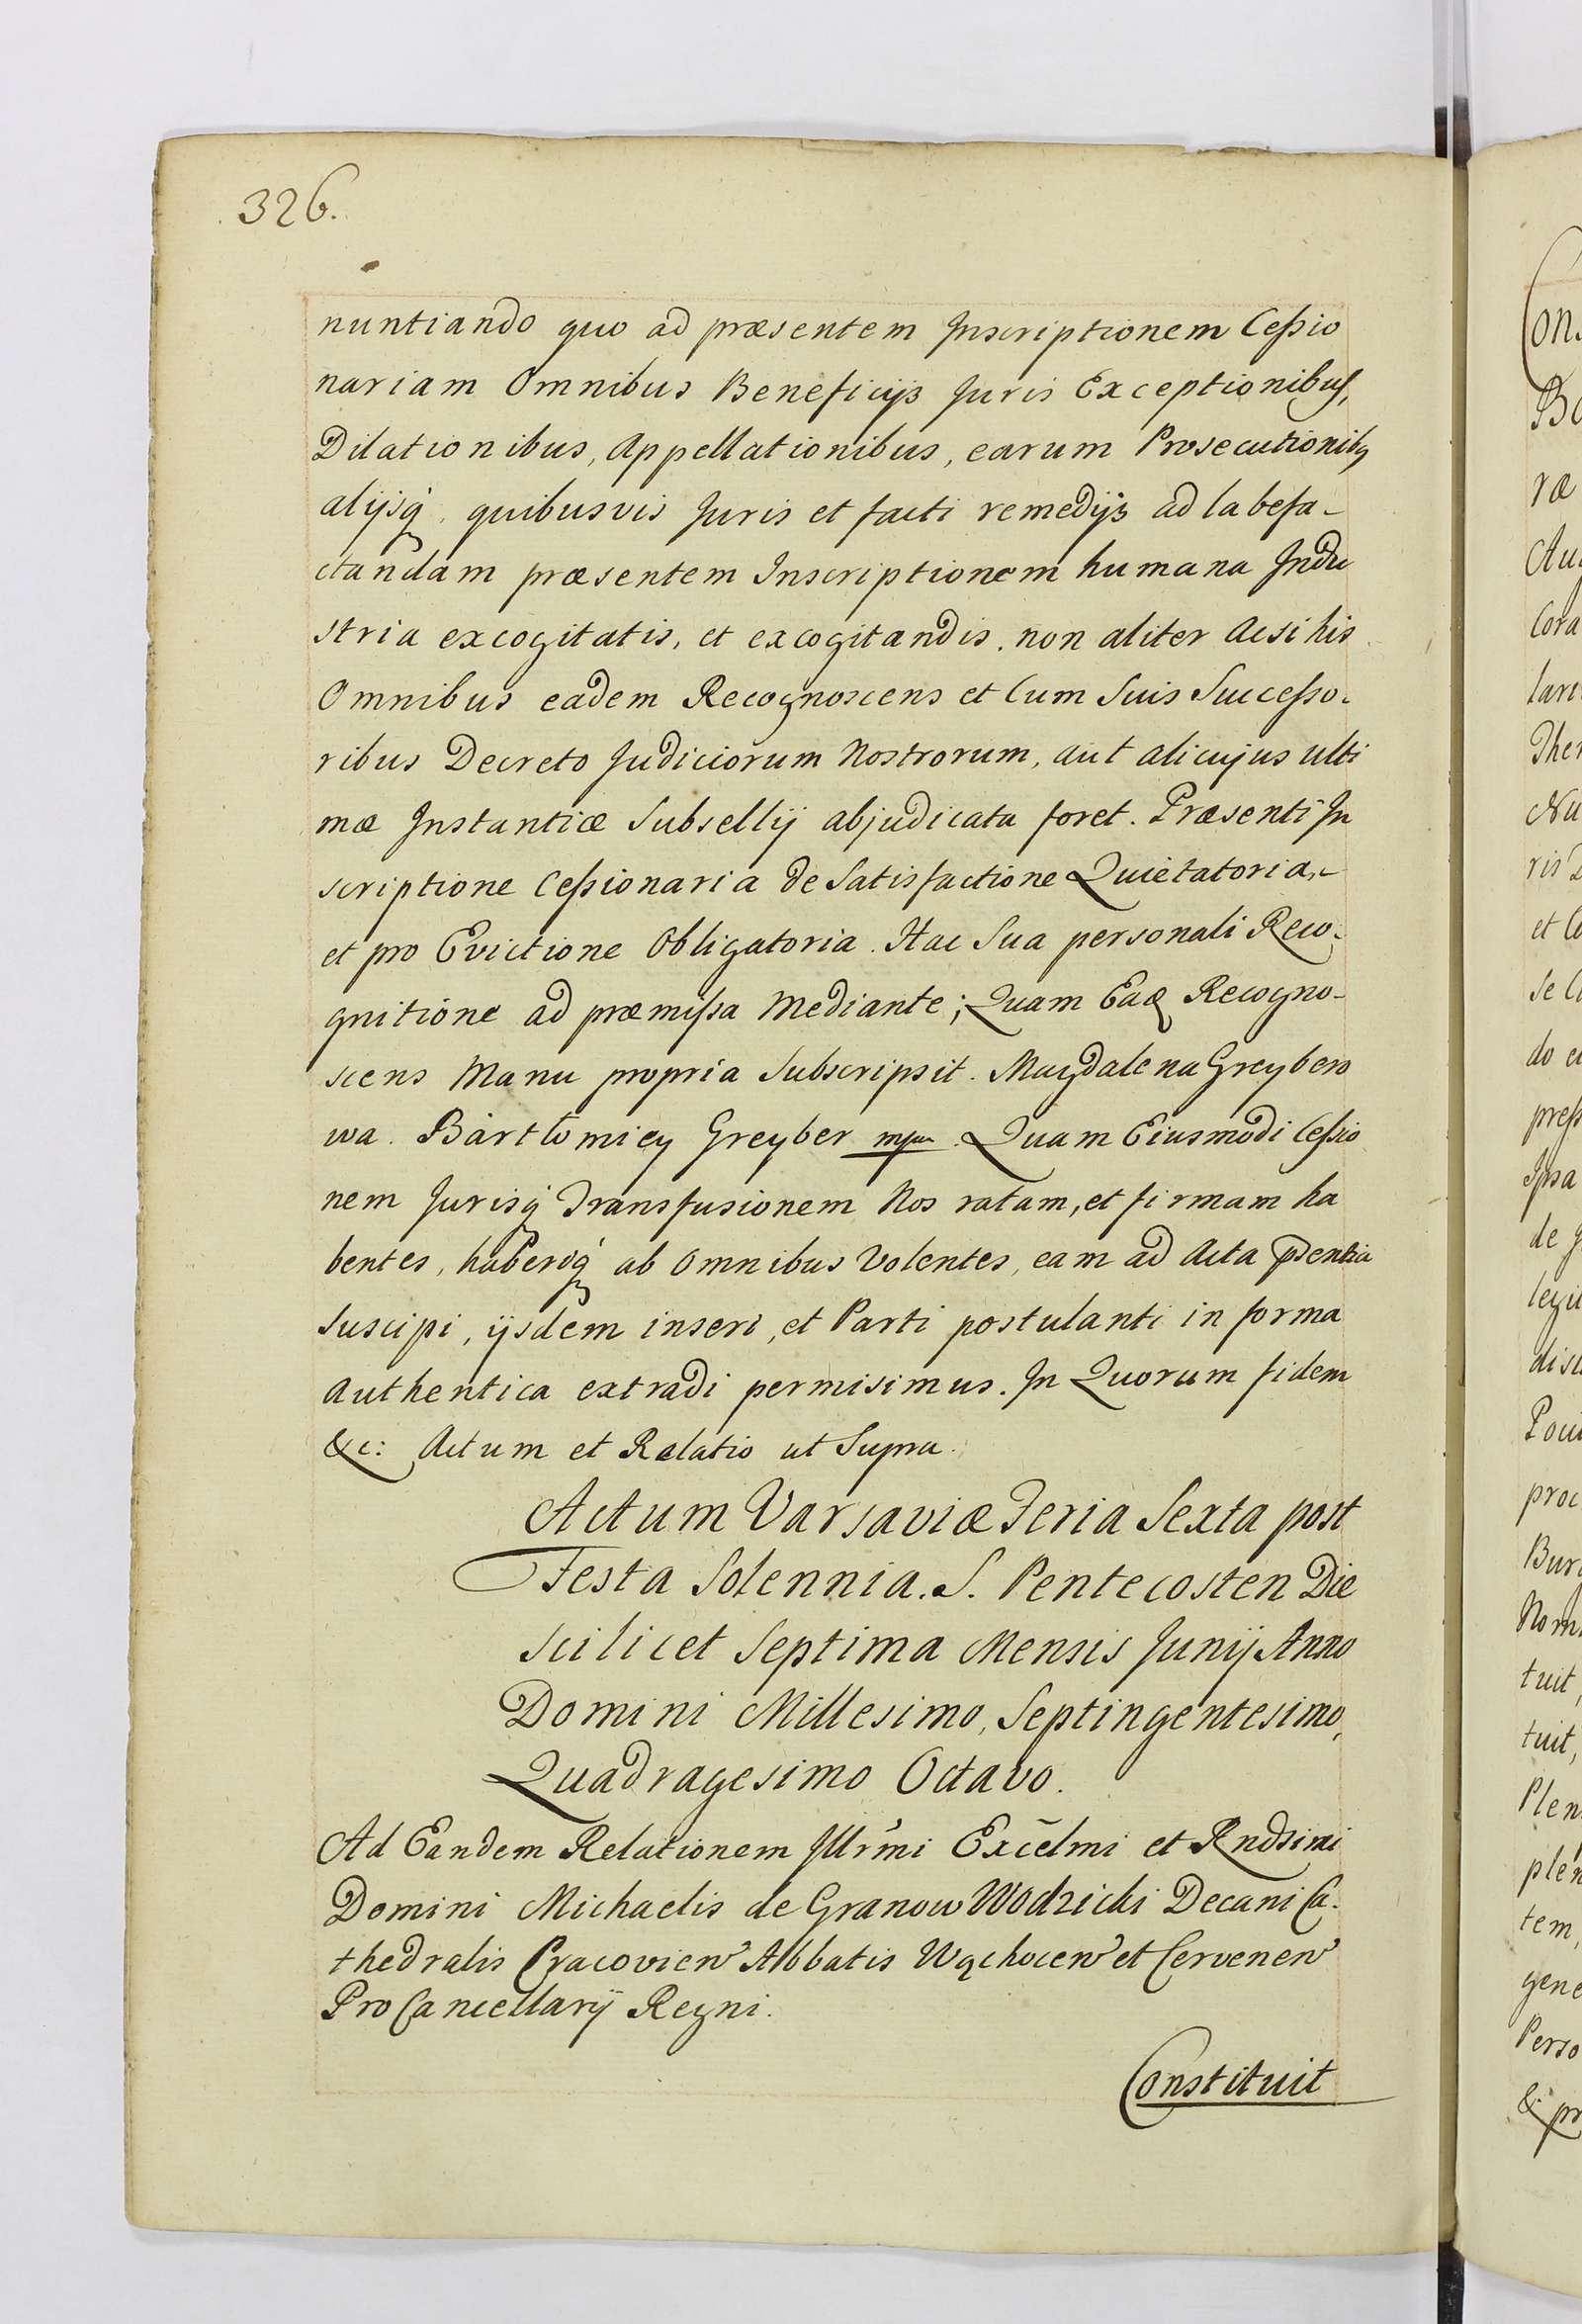 326.
nuntiando quo ad præsentem Inscriptionem Cessio
nariam Omnibus Beneficijs Juris Exceptionibus,
Dilationibus, Appellationibus, earum Prosecutionibꝫ
alijsq́, quibusvis Juris et facti remedijs ad labefa-
ctandam præsentem Inscriptionem humana Indu
stria excogitatis, et excogitandis, non aliter Acsi his
Omnibus eadem Recognoscens et Cum Suis Successo-
ribus Decreto Judiciorum Nostrorum, aut alicujus ulti
mæ Instantiæ Subsellij abjudicata foret. Præsenti In
scriptione Cessionaria de Satisfactione Quietatoria,
et pro Evictione Obligatoria. Hac Sua personali Reco-
gnitione ad præmissa Mediante; Quam Eaq Recogno-
scens Manu propria Subscripsit. Magdalena Greybero
wa. Bartłomiey Greyber mpr. Quam Eiusmodi Cessio
nem Jurisq́ Transfusionem Nos ratam, et firmam ha
bentes, haberiq́ ab Omnibus Volentes, eam ad Acta p̄sentia
Suscipi, ijsdem inseri, et Parti postulanti in forma
Authentica extradi permisimus. In Quorum fidem
&c: Actum et Relatio ut Supra.
Actum Varsaviæ Feria Sexta post
Festa Solennia. S. Pentecosten Die
scilicet Septima Mensis Junij Anno
Domini Millesimo, Septingentesimo,
Quadragesimo Octavo.
Ad Eandem Relationem Illr̄mi Exc̄elmi et Rndsimi
Domini Michaelis de Granow Wodzicki Decani Ca-
thedralis Cracovien' Abbatis Wąchocen' et Cervenen'
ProCancellarij Regni.
Constituit